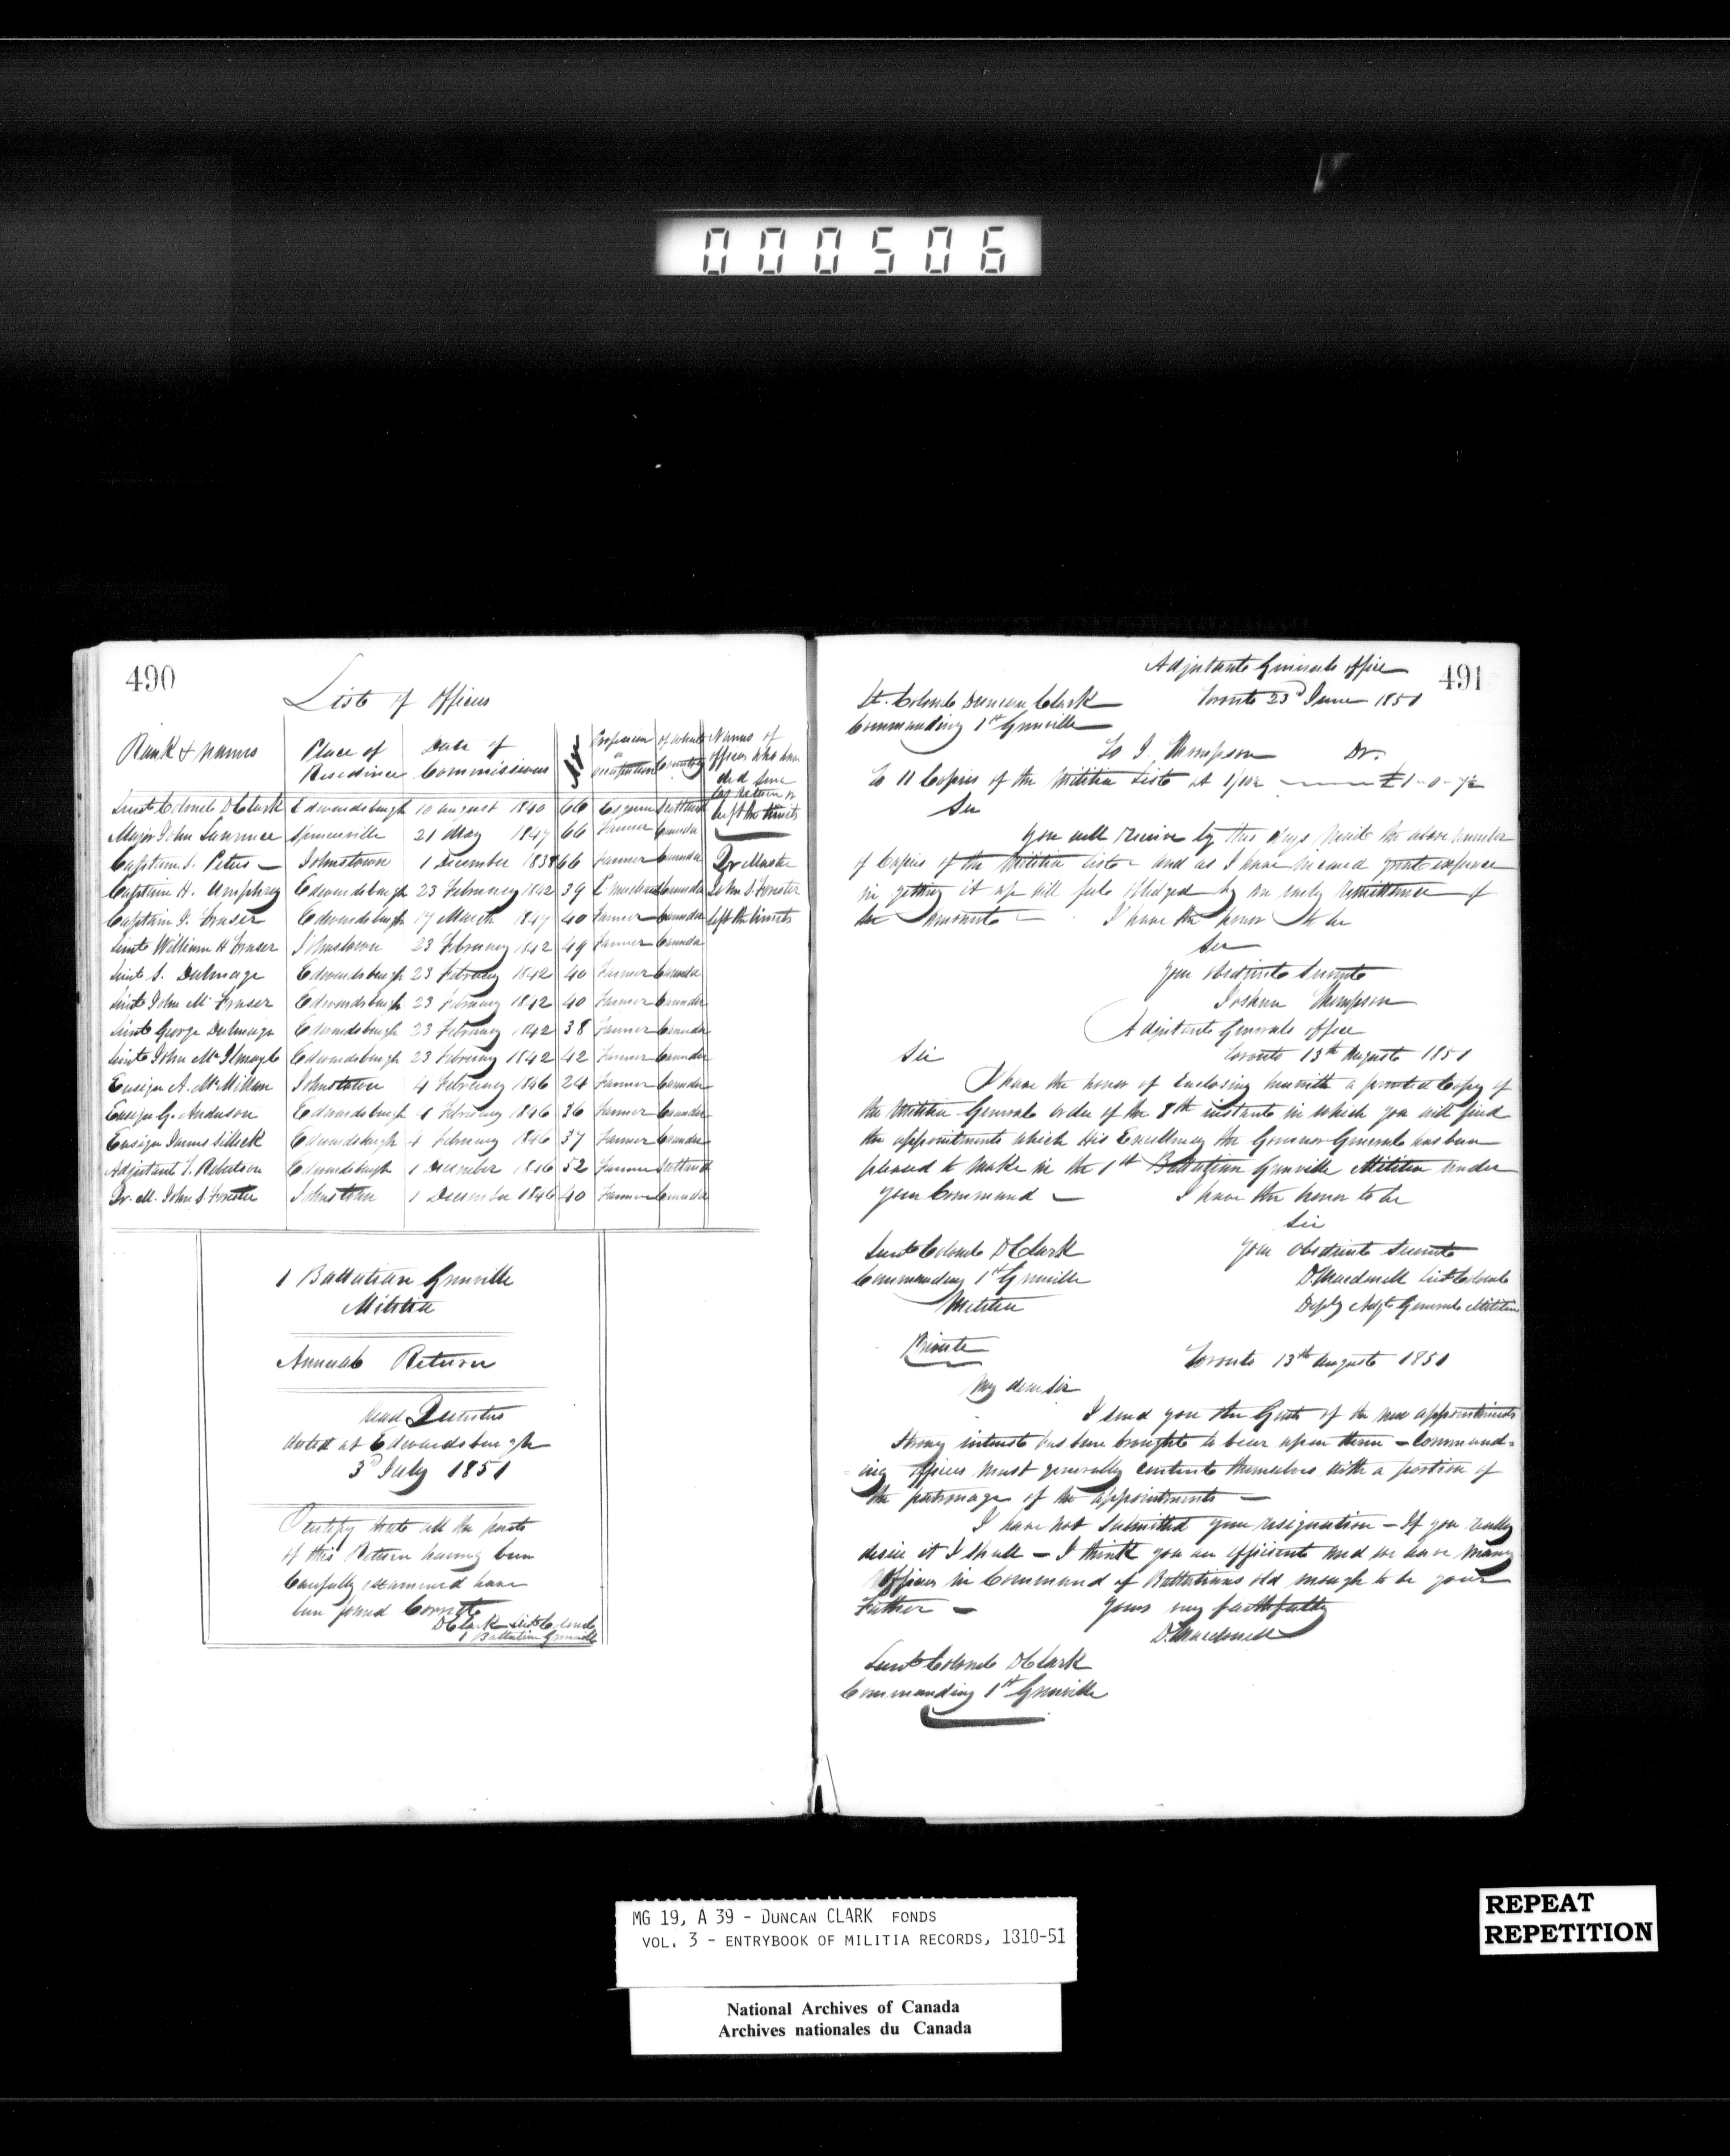 000506
490
List of Officers
Rank & Names Place of Residence Date of Commissions Age Profession or Occupation of what Country Names of officers who have died since last Return or left the limits
Lieut Colonel D Clark Edwardsburgh 10 August 1840 66 Esquire Scotland
Major John Lawrence Spencerville 21 May 1847 66 Farmer Canada
Captain S. Peters Johnstown 1 December 1838 66 Farmer Canada Qr Master
Captain H. Umphrey Edwardsburgh 23 February 1842 39 Canada John S. Forrester
Captain I. Fraser Edwardsburgh 17 March 1847 40 Farmer Canada left the limits
Lieut William H Fraser Johnstown 23 February 1842 49 Farmer Canada
Lieut S. Dulmage Edwardsburgh 23 February 1842 40 Farmer Canada
Lieut John M Fraser Edwardsburgh 23 February 1842 40 Farmer Canada
Lieut George Dulmage Edwardsburgh 23 February 1842 38 Farmer Canada
Lieut John McIlmoyle Edwardsburgh 23 February 1842 42 Farmer Canada
Ensign A. McMillan Johnstown 4 February 1846 24 Farmer Canada
Ensign G. Anderson Edwardsburgh 4 February 1846 36 Farmer Canada
Ensign James Selleck Edwardsburgh 4 February 1846 37 Farmer Canada
Adjutant T. Robertson Edwardsburgh 1 December 1846 52 Farmer Scotland
Qr. M. John S. Forrester Johnstown 1 December 1846 40 Farmer Canada
1 Battalion Grenville
Militia
Annual Return
Head Quarters
dated at Edwardsburgh
3d July 1851
I Certify that all the parts
of this Return having been
Carefully examined have
been found Correct
D Clark Lieut Colonel
1 Battalion Grenville
491
Adjutant Generals office
Lt. Colonel Duncan Clark Toronto 23d June 1851
Commanding 1st Grenville
To J. Thompson Dr.
To 11 Copies of the Militia List at 1/10½ £1-0-7½
Sir
You will receive by this days Mail the above number
of Copies of the Militia List and as I have incurred great expense
in getting it up will feel obliged by an early remittance of
the amount I have the honor to be
Sir
Your Obedient Servant
Joshua Thompson
Adjutant Generals office
Sir Toronto 13th August 1851
I have the honor of Enclosing herewith a printed Copy of
the Militia General order of the 8th instant in which you will find
the appointments which His Excellency the Governor General has been
pleased to make in the 1st Battalion Grenville Militia under
your Command I have the honor to be
Sir
Lieut Colonel D Clark your obedient Servant
Commanding 1st Grenville D. Macdonell Lieut Colonel
Militia Depty Adjt General Militia
Private Toronto 13th August 1851
My dear Sir
I send you the Gazette of the new appointments
Strong interest has been brought to bear upon them – Command-
ing officers must generally content themselves with a portion of
the patronage of the appointments –
I have not Submitted your resignation – If you really
desire it I shall – I think you are efficient and we have many
Officers in Command of Battalions old enough to be your
Father – Yours very faithfully
D. Macdonell
Lieut Colonel D Clark
Commanding 1st Grenville
MG 19, A 39 - DUNCAN CLARK FONDS
VOL. 3 - ENTRYBOOK OF MILITIA RECORDS, 1810-51
National Archives of Canada
Archives nationales du Canada
REPEAT
REPETITION